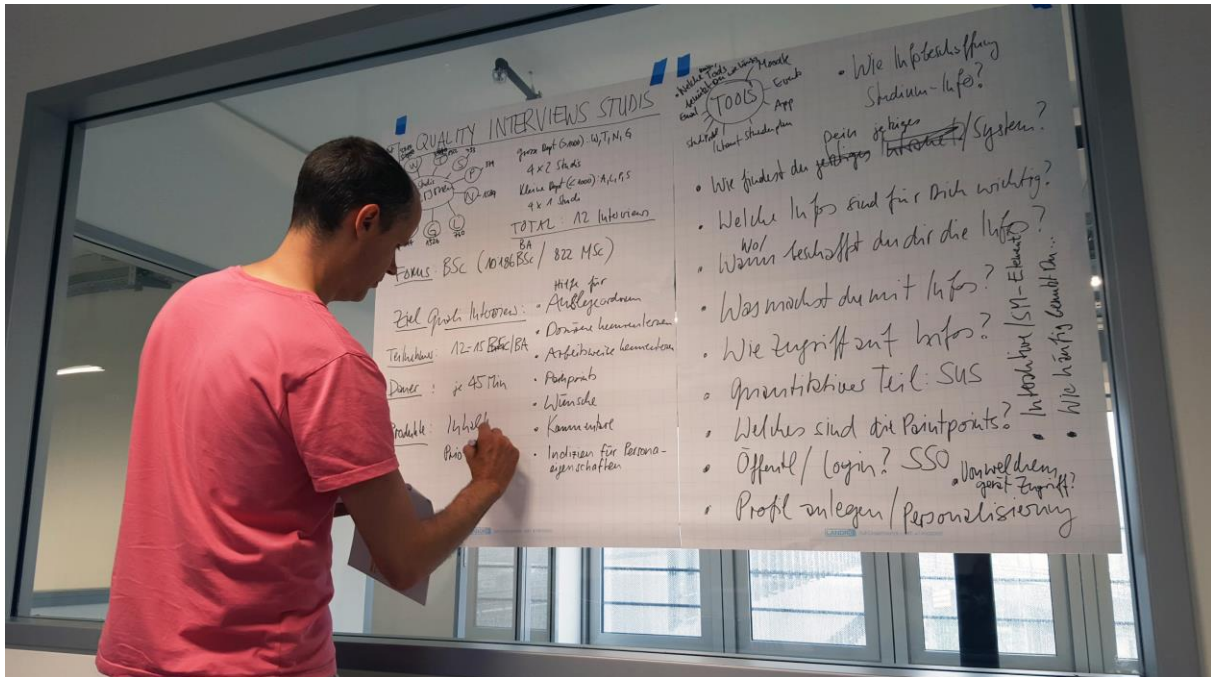 QUALITY INTERVIEWS STUDIS
grosse Dept (>1000): W, T, N, G
4 x 2 Studis
Kleine Dept (<1000): A, L, P, S
4 x 1 Studi
TOTAL: 12 Interviews
BA
FOKUS: BSc (10186 BSc / 822 MSc)
Ziel Quali Interview:
Teilnehmer: 12-15 BSc/BA
Dauer: je 45 Min
Produkte: Inhalt
Prio
Hilfe für
Auslegeordnung
• Domäne kennenlernen
• Arbeitsweise kennenlernen
• Painpoints
• Wünsche
• Kommentare
• Indizien für Persona-
eigenschaften
• Welche Tools
benützt du
TOOLS
Moodle
Evento
App
Stundenplan
Email
• Wie Infobeschaffung
Studium-Info?
Dein jetziges
• Wie findest du jetziges Intranet/System?
• Welche Infos sind für Dich wichtig?
Wo/
• Wann beschaffst du dir die Infos?
• Was machst du mit Infos?
• Wie Zugriff auf Infos?
• quantitativer Teil: SUS
• Welches sind die Paintpoints?
• Öffentl/Login? SSO
• Von welchem
gerät Zugriff?
• Profil anlegen/Personalisierung
• Wie häufig benützt Du...
LANDRÉ
LANDRÉ